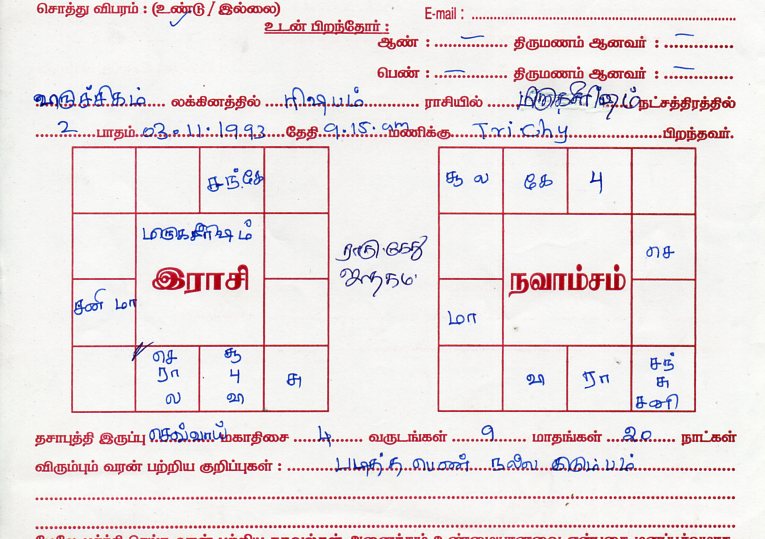 சொத்து விபரம் : (உண்டு / இல்லை)
E-mail : ....................
உடன் பிறந்தோர் :
ஆண் : ..... – ..... திருமணம் ஆனவர் : ..... – .....
பெண் : ..... – ..... திருமணம் ஆனவர் : ..... – .....
விருச்சிகம் லக்கினத்தில் ரிஷபம் ராசியில் மிருகசீரிஷம் நட்சத்திரத்தில்
2 பாதம் 03.11.1993 தேதி 9.15 am மணிக்கு Trichy பிறந்தவர்.
சந் கே
மிருகசீரிஷம்
இராசி
சனி மா
செ ரா ல
சூ பு வி
சு
ராகு கேது
ஜாதகம்
சூ ல
கே
பு
செ
நவாம்சம்
மா
வி
ரா
சந் சு சனி
தசாபுத்தி இருப்பு செவ்வாய் மகாதிசை 4 வருடங்கள் 9 மாதங்கள் 20 நாட்கள்
விரும்பும் வரன் பற்றிய குறிப்புகள் : படித்த பெண் நல்ல குடும்பம்